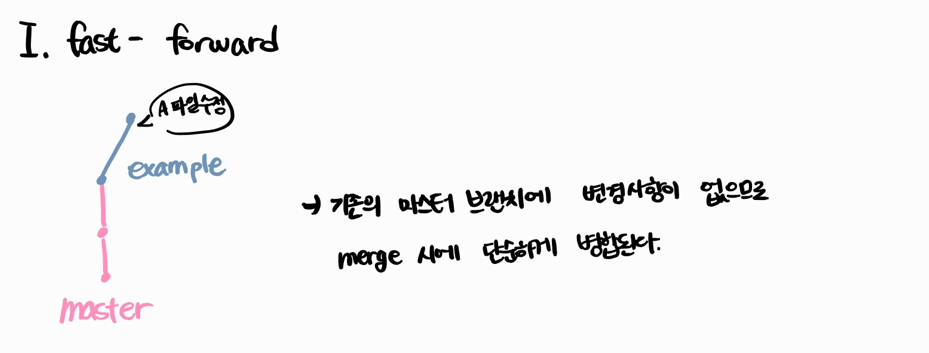 I. fast - forward
A 파일수정
example
→ 기존의 마스터 브랜치에 변경사항이 없으므로
merge 시에 단순하게 병합된다.
master